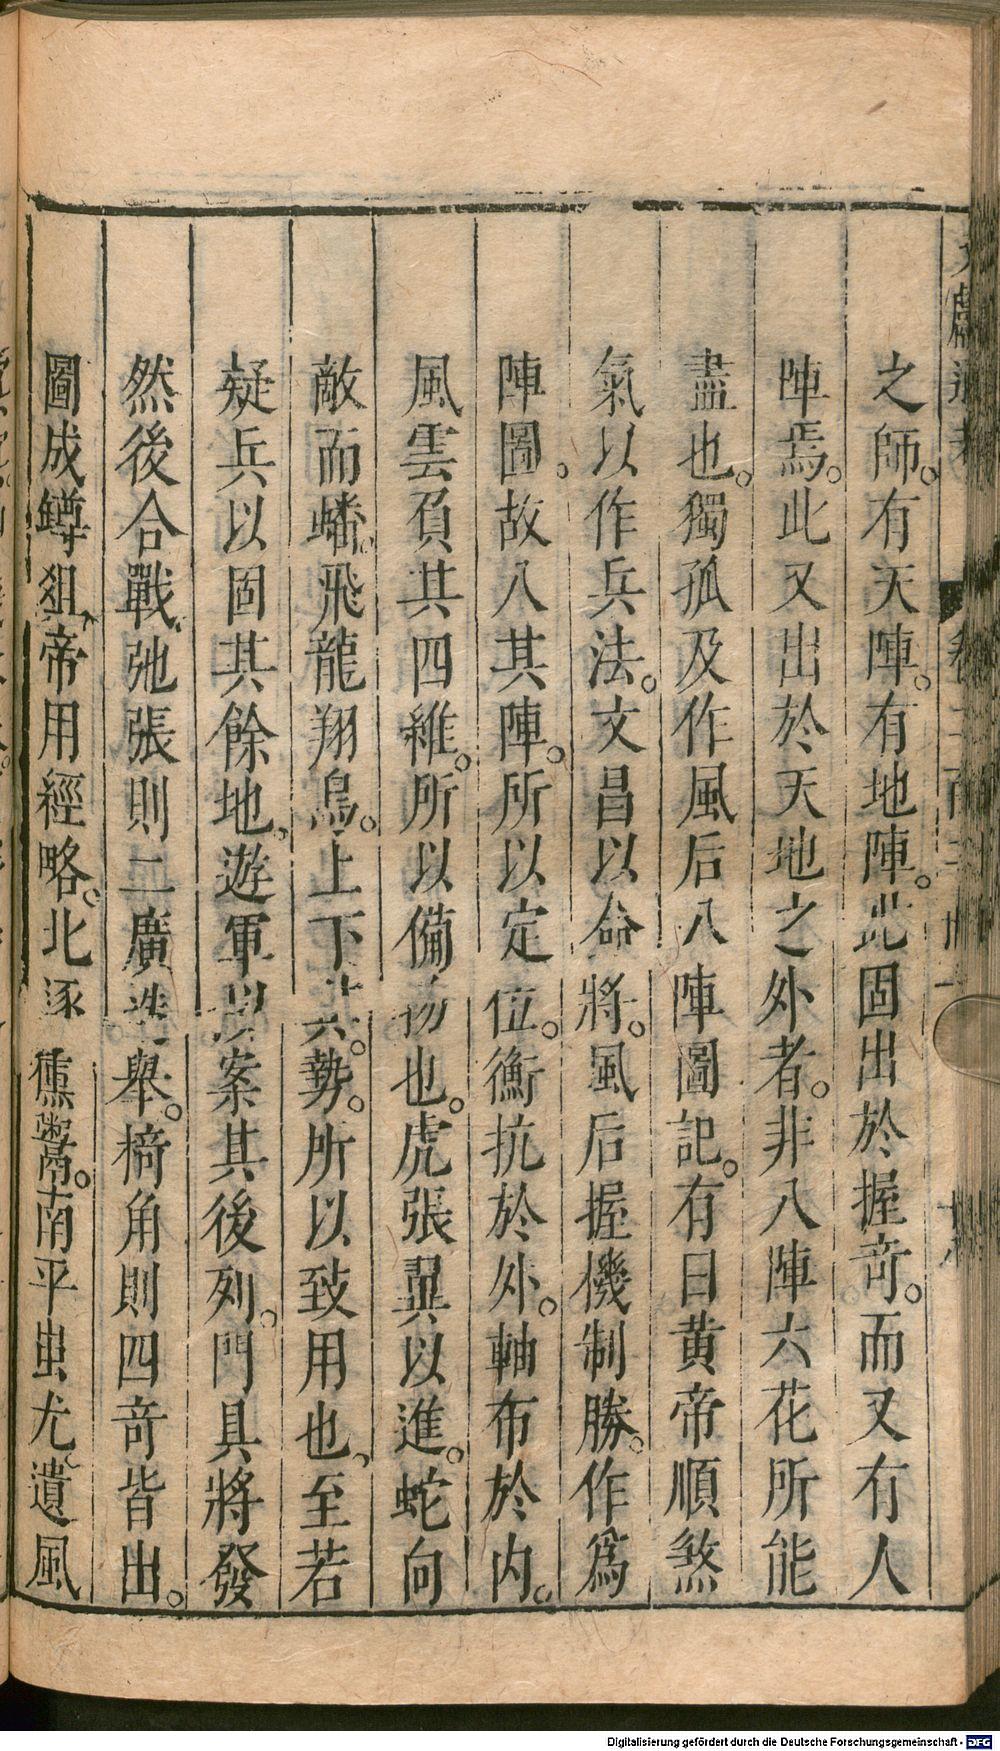 之師。有天陣。有地陣。此固出於握奇。而又有人
陣焉。此又出於天地之外者。非八陣六花所能
盡也。獨孤及作風后八陣圖記。有曰黃帝順煞
氣以作兵法。文昌以命將。風后握機制勝。作爲
陣圖。故八其陣。所以定位。衡抗於外。軸布於内。
風雲負其四維。所以備物也。虎張翼以進。蛇向
敵而蟠。飛龍翔鳥。上下其勢。所以致用也。至若
疑兵以固其餘地。遊軍以案其後列。門具將發
然後合戰。弛張則二廣迭舉。掎角則四奇皆出。
圖成鐏俎。帝用經略。北逐獯鬻。南平蚩尤。遺風
文獻通考
Digitalisierung gefördert durch die Deutsche Forschungsgemeinschaft - DFG